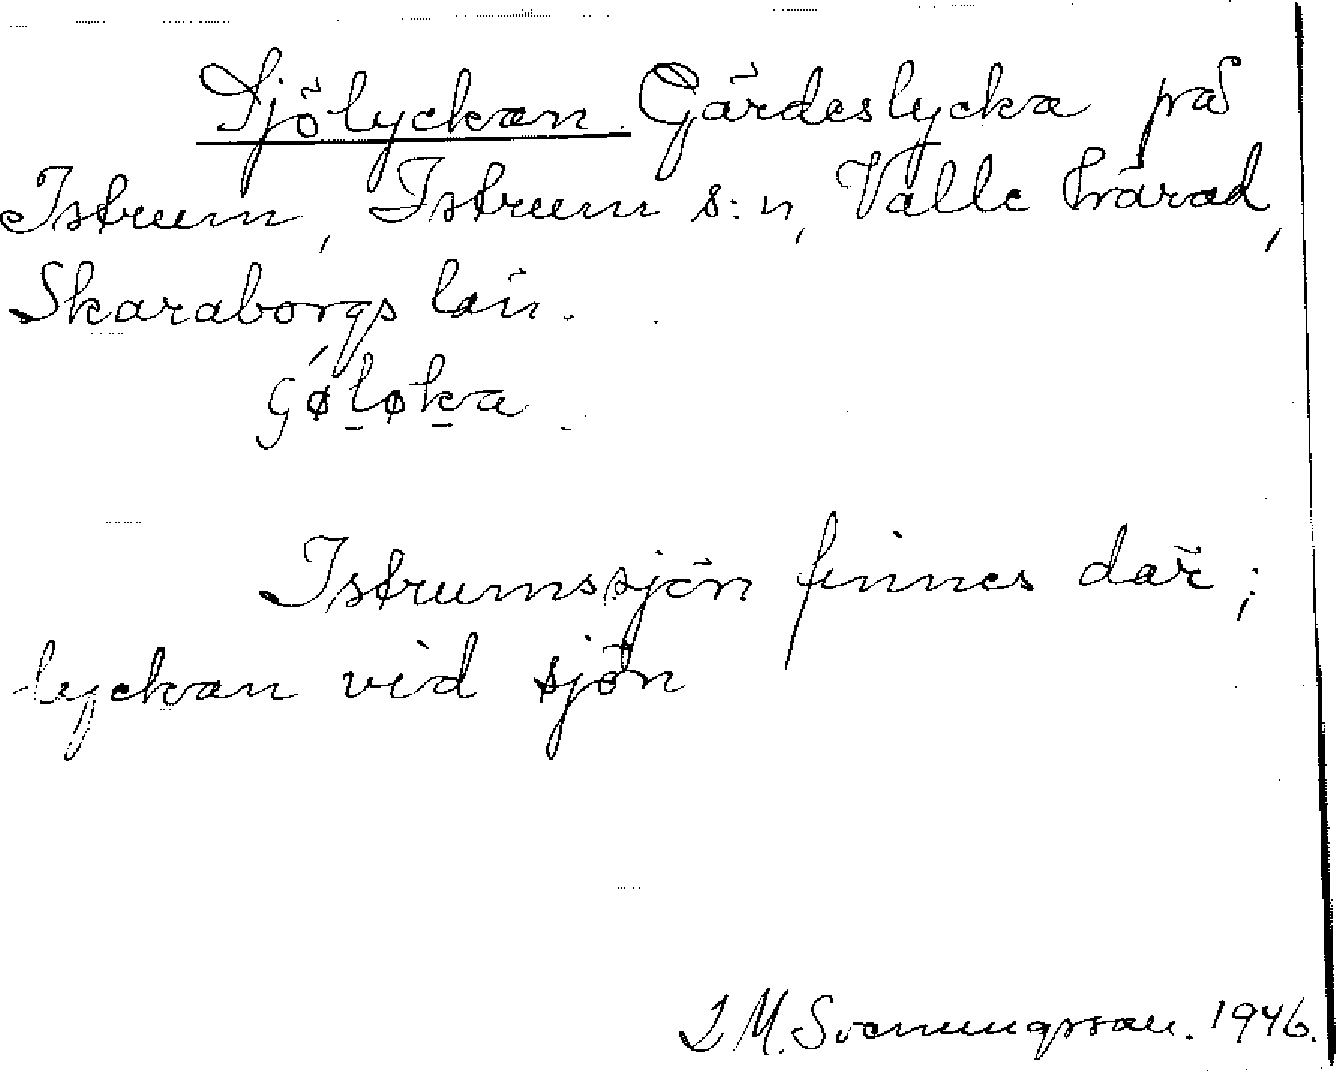 Sjölyckan. Gärdeslycka på
Istrum, Istrum s:n, Valle härad,
Skaraborgs län.
ɕø̀l̠øk̠a.
Istrumssjön finnes där;
lyckan vid sjön
I. M. Svenungsson. 1946.